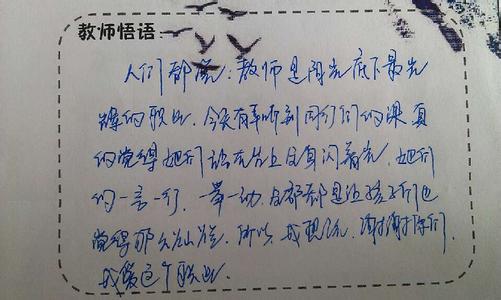 教师悟语：
人们都说：教师是阳光底下最光
辉的职业。今天有幸听到同行们的课真
的觉得她们站在台上自身闪着光，她们
的一言一行，一举一动，都是让孩子们也
觉得那么。所以，我想说，谢谢你们，
我爱这个职业。